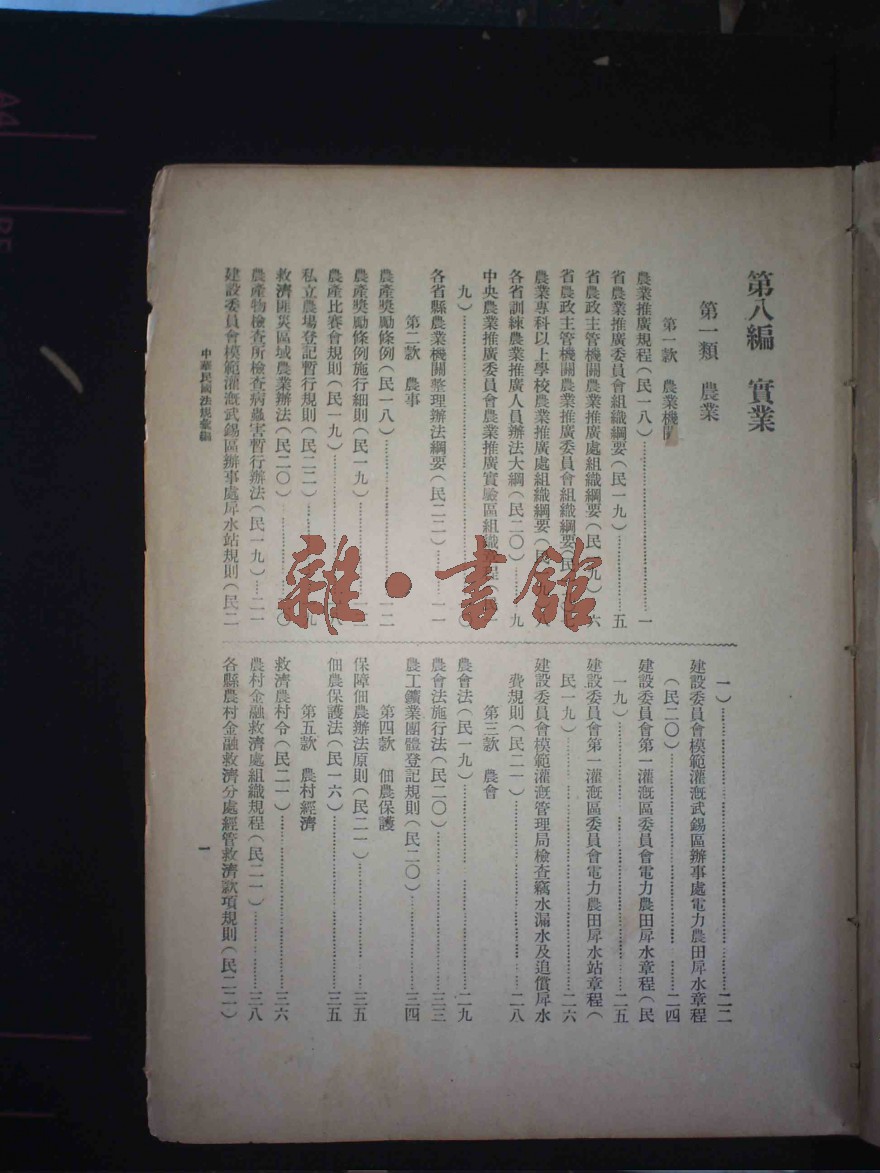 第八編　實業
第一類　農業
第一款　農業機關
農業推廣規程（民一八）……一
省農業推廣委員會組織綱要（民一九）……五
省農政主管機關農業推廣處組織綱要（民一九）六
省農政主管機關農業推廣委員會組織綱要（民
農業專科以上學校農業推廣處組織綱要（民
各省訓練農業推廣人員辦法大綱（民二〇）……九
中央農業推廣委員會農業推廣實驗區組織章程（民一
九）……
各省縣農業機關整理辦法綱要（民二二）……一一
第二款　農事
農產獎勵條例（民一八）……一二
農產獎勵條例施行細則（民一九）……
農產比賽會規則（民一九）……
私立農場登記暫行規則（民二二）……
救濟匪災區域農業辦法（民二〇）……
農產物檢查所檢查病蟲害暫行辦法（民一九）……二一
建設委員會模範灌溉武錫區辦事處戽水站規則（民二
一）……二二
建設委員會模範灌溉武錫區辦事處電力農田戽水章程
（民二〇）……二四
建設委員會第一灌溉區委員會電力農田戽水章程（民
一九）……二五
建設委員會第一灌溉區委員會電力農田戽水站章程（
民一九）……二六
建設委員會模範灌溉管理局檢查竊水漏水及追償戽水
費規則（民二一）……二八
第三款　農會
農會法（民一九）……二九
農會法施行法（民二〇）……三三
農工鑛業團體登記規則（民二〇）……三四
第四款　佃農保護
保障佃農辦法原則（民二一）……三五
佃農保護法（民一六）……三五
第五款　農村經濟
救濟農村令（民二一）……三六
農村金融救濟處組織規程（民二一）……三八
各縣農村金融救濟分處經管救濟款項規則（民二二）
中華民國法規彙編
一
雜·書館